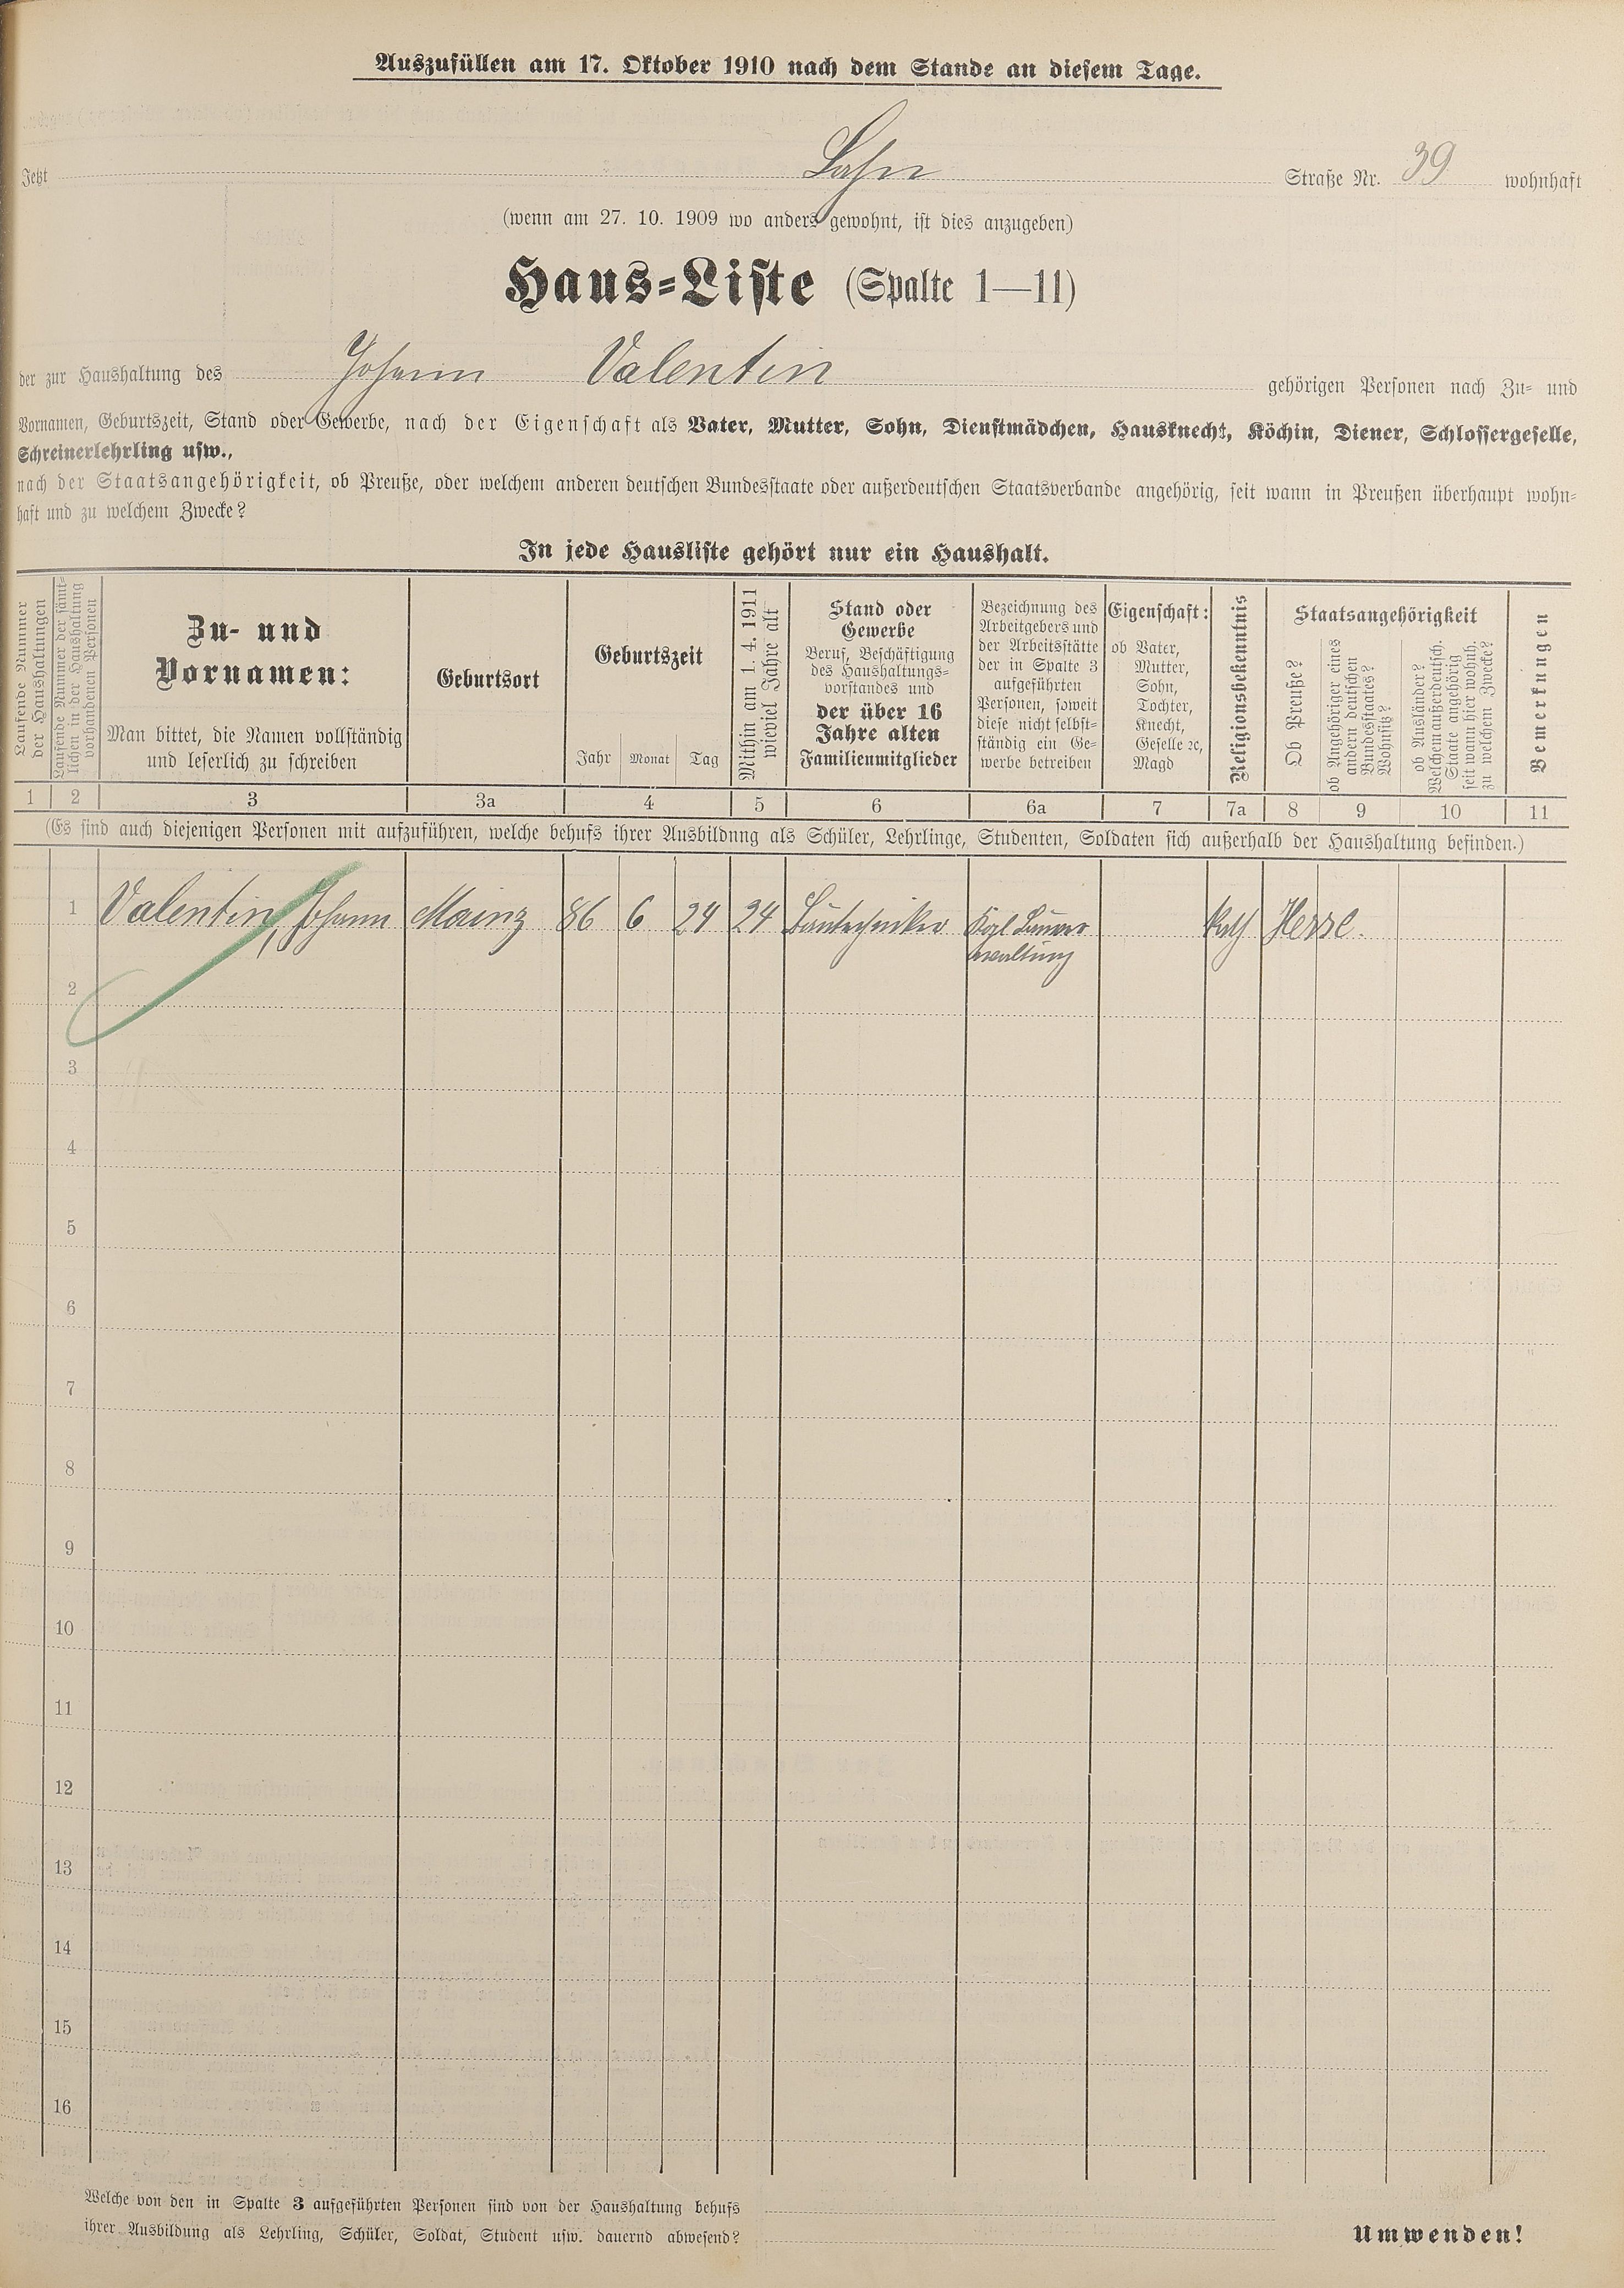 Auszufüllen am 17. Oktober 1910 nach dem Stande an diesem Tage.
Jetzt Lahn Straße Nr. 39 wohnhaft
(wenn am 27. 10. 1909 wo anders gewohnt, ist dies anzugeben)
Haus-Liste (Spalte 1—11)
der zur Haushaltung des Johann Valentin gehörigen Personen nach Zu- und
Vornamen, Geburtszeit, Stand oder Gewerbe, nach der Eigenschaft als Vater, Mutter, Sohn, Dienstmädchen, Hausknecht, Köchin, Diener, Schlossergeselle,
Schreinerlehrling usw.,
nach der Staatsangehörigkeit, ob Preuße, oder welchem anderen deutschen Bundesstaate oder außerdeutschen Staatsverbande angehörig, seit wann in Preußen überhaupt wohn-
haft und zu welchem Zwecke?
In jede Hausliste gehört nur ein Haushalt.
Laufende Nummer
der Haushaltungen
Laufende Nummer der sämt-
lichen in der Haushaltung
vorhandenen Personen
Zu- und
Vornamen:
Man bittet, die Namen vollständig
und leserlich zu schreiben
Geburtsort
Geburtszeit
Jahr Monat Tag
Mithin am 1. 4. 1911
wieviel Jahre alt
Stand oder
Gewerbe
Beruf, Beschäftigung
des Haushaltungs-
vorstandes und
der über 16
Jahre alten
Familienmitglieder
Bezeichnung des
Arbeitgebers und
der Arbeitsstätte
der in Spalte 3
aufgeführten
Personen, soweit
diese nicht selbst-
ständig ein Ge-
werbe betreiben
Eigenschaft:
ob Vater,
Mutter,
Sohn,
Tochter,
Knecht,
Geselle ꝛc,
Magd
Religionsbekenntnis
Staatsangehörigkeit
Ob Preuße?
ob Angehöriger eines
andern deutschen
Bundesstaates?
Wohnsitz?
ob Ausländer?
Welchem außerdeutsch.
Staate angehörig
seit wann hier wohnh.
zu welchem Zwecke?
Bemerkungen
1 2 3 3a 4 5 6 6a 7 7a 8 9 10 11
(Es sind auch diejenigen Personen mit aufzuführen, welche behufs ihrer Ausbildung als Schüler, Lehrlinge, Studenten, Soldaten sich außerhalb der Haushaltung befinden.)
1 Valentin, Johann Mainz 86 6 24 24 Bautechniker Kgl Bauver Kath
waltung
2
3
4
5
6
7
8
9
10
11
12
13
14
15
16
Welche von den in Spalte 3 aufgeführten Personen sind von der Haushaltung behufs
ihrer Ausbildung als Lehrling, Schüler, Soldat, Student usw. dauernd abwesend?
Umwenden!